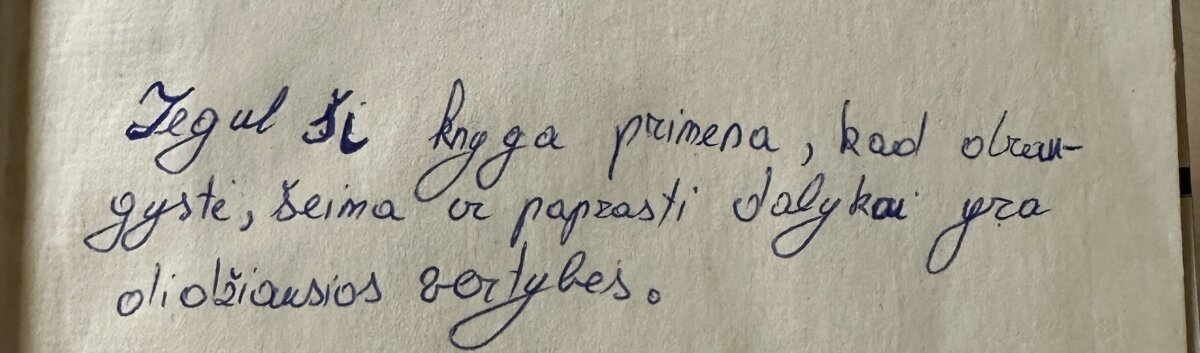 Tegul ši knyga primena, kad drau-
gystė, šeima ir paprasti dalykai yra
didžiausios vertybės.